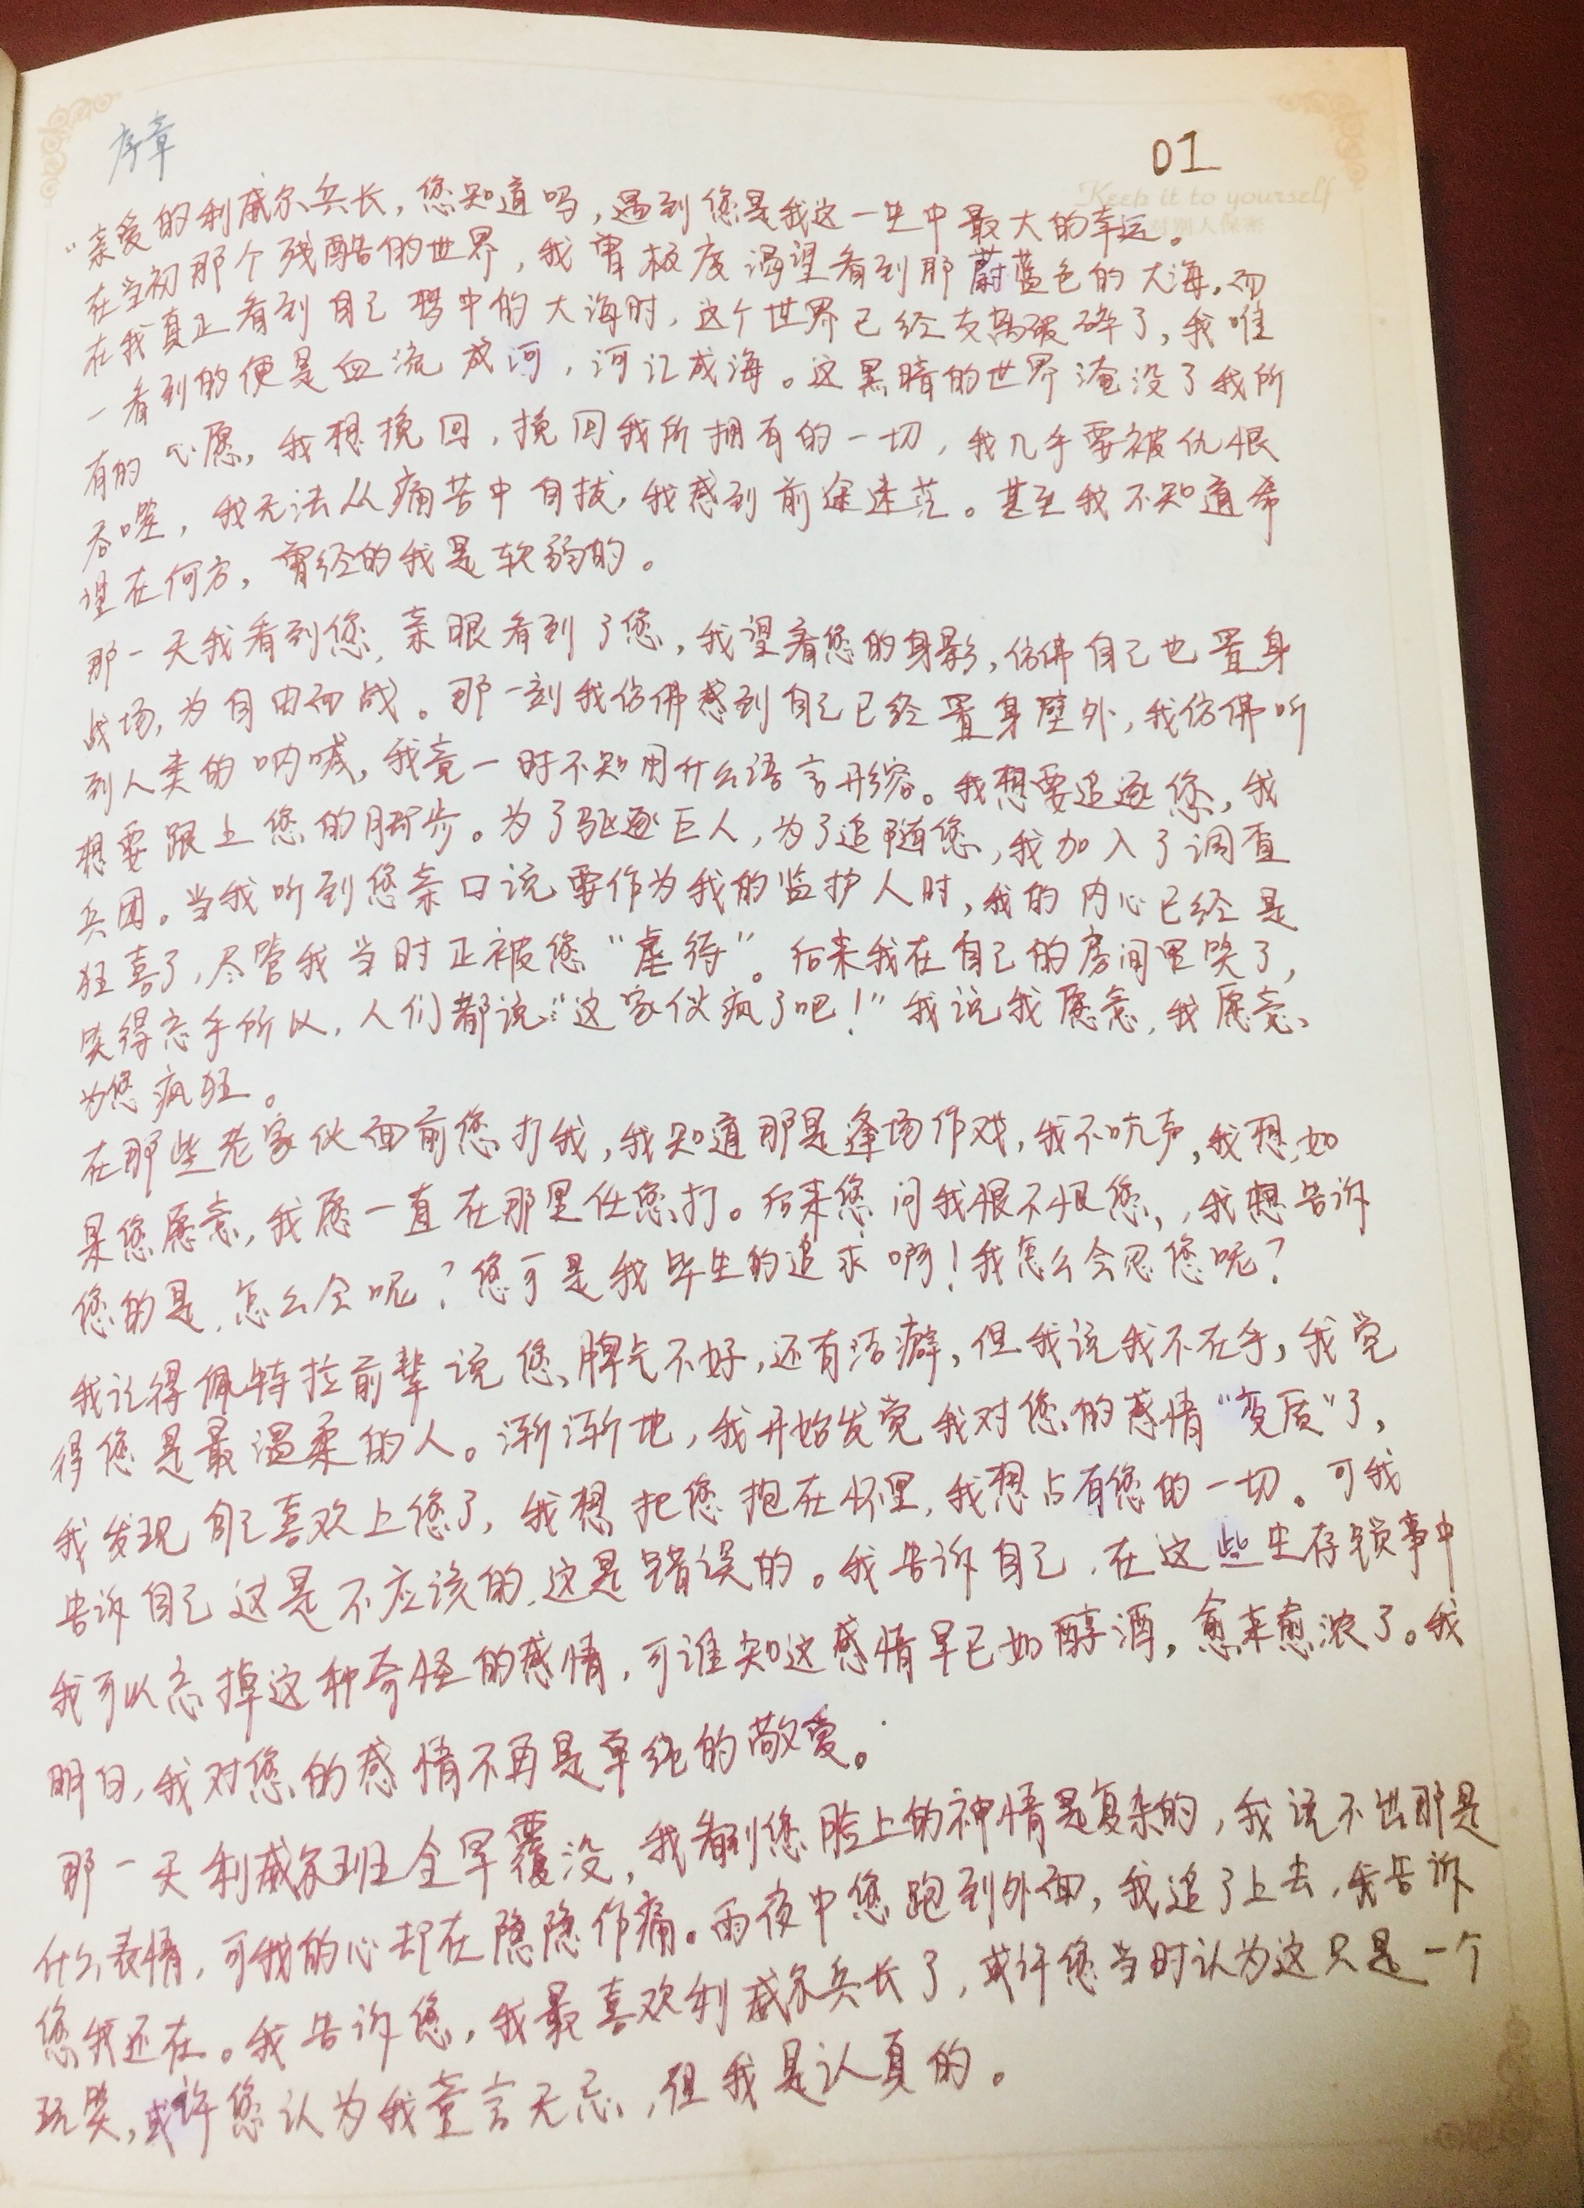 序章
01
Keep it to yourself
对别人保密
“亲爱的利威尔兵长，您知道吗，遇到您是我这一生中最大的幸运。
在当初那个残酷的世界，我曾极度渴望看到那蔚蓝色的大海，而
在我真正看到自己梦中的大海时，这个世界已经支离破碎了，我唯
一看到的便是血流成河，河汇成海。这黑暗的世界淹没了我所
有的心愿，我想挽回，挽回我所拥有的一切，我几乎要被仇恨
吞噬，我无法从痛苦中自拔，我感到前途迷茫。甚至我不知道希
望在何方，曾经的我是软弱的。
那一天我看到您，亲眼看到了您，我望着您的身影，仿佛自己也置身
战场，为自由而战。那一刻我仿佛感到自己已经置身壁外，我仿佛听
到人类的呐喊，我竟一时不知用什么语言形容。我想要追逐您，我
想要跟上您的脚步。为了驱逐巨人，为了追随您，我加入了调查
兵团。当我听到您亲口说要作为我的监护人时，我的内心已经是
狂喜了，尽管我当时正被您“虐待”。后来我在自己的房间里笑了，
笑得忘乎所以，人们都说：“这家伙疯了吧！”我说我愿意，我愿意、
为您疯狂。
在那些老家伙面前您打我，我知道那是逢场作戏，我不吭声，我想，如
果您愿意，我愿一直在那里任您打。后来您问我恨不恨您，，我想告诉
您的是，怎么会呢？您可是我毕生的追求啊！我怎么会忍您呢？
我记得佩特拉前辈说您脾气不好，还有洁癖，但我说我不在乎，我觉
得您是最温柔的人。渐渐地，我开始发觉我对您的感情“变质”了，
我发现自己喜欢上您了，我想把您抱在怀里，我想占有您的一切。可我
告诉自己这是不应该的，这是错误的。我告诉自己，在这些生存锁事中
我可以忘掉这种奇怪的感情，可谁知这感情早已如醇酒，愈来愈浓了。我
明白，我对您的感情不再是单纯的敬爱。
那一天利威尔班全军覆没，我看到您脸上的神情是复杂的，我说不出那是
什么表情，可我的心却在隐隐作痛。雨夜中您跑到外面，我追了上去，我告诉
您我还在。我告诉您，我最喜欢利威尔兵长了，或许您当时认为这只是一个
玩笑，或许您认为我童言无忌，但我是认真的。